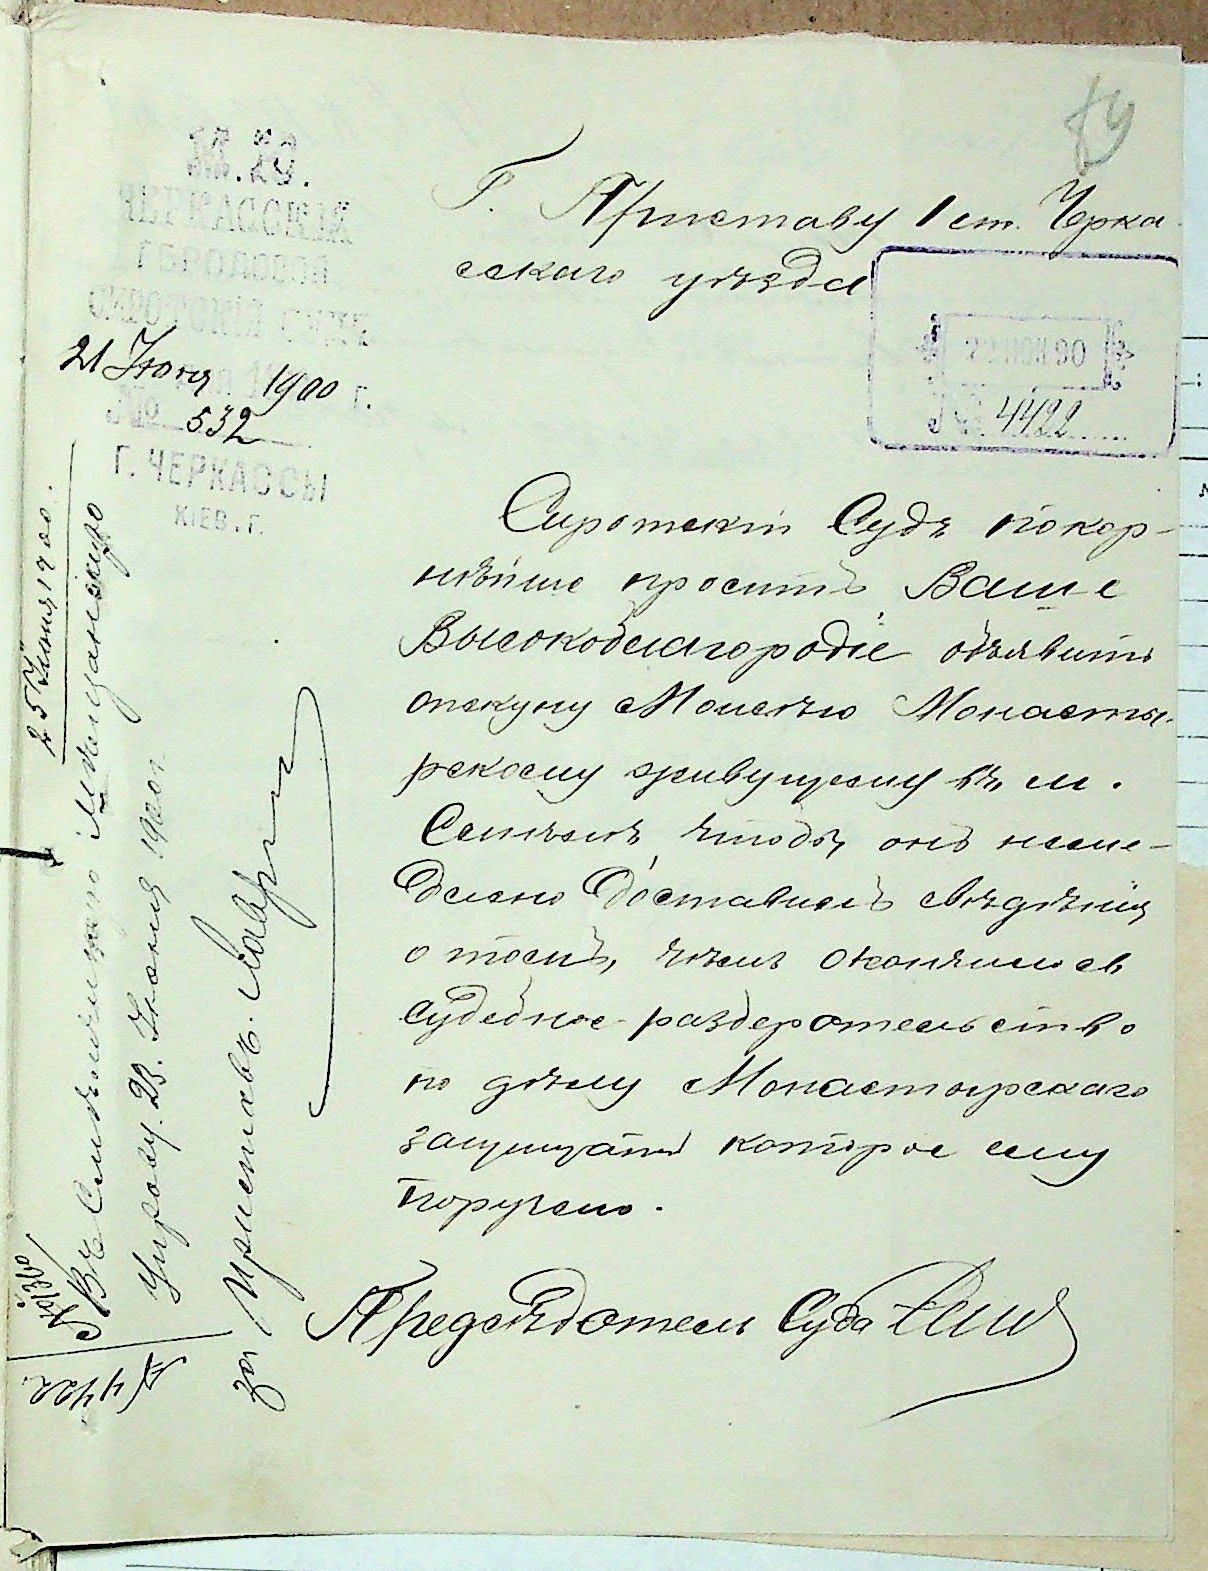 М. Ю.
ЧЕРКАССКІЙ
ГОРОДСКОЙ
СИРОТСКІЙ СУДЪ
21 Іюня 1900 г.
№ 532
Г. ЧЕРКАССЫ
КІЕВ. Г.
Г. Приставу 1 ст. Черка
сскаго уѣзда
№ 4422
Сиротскій Судъ покор-
нѣйше проситъ Ваше
Высокоблагородіе объявить
опекуну Моисѣю Монасты-
рскому живущему въ м.
чтобы онъ неме-
дленно доставилъ свѣдѣнія
о томъ, чѣмъ окончилось
судебное разбирательство
по дѣлу Монастырскаго
защищать которое ему
поручено.
Предсѣдатель Суда
25 Іюня 1900.
Въ Мѣщанскую
Управу. 23 Іюня 1900 г.
за Приставъ
4422